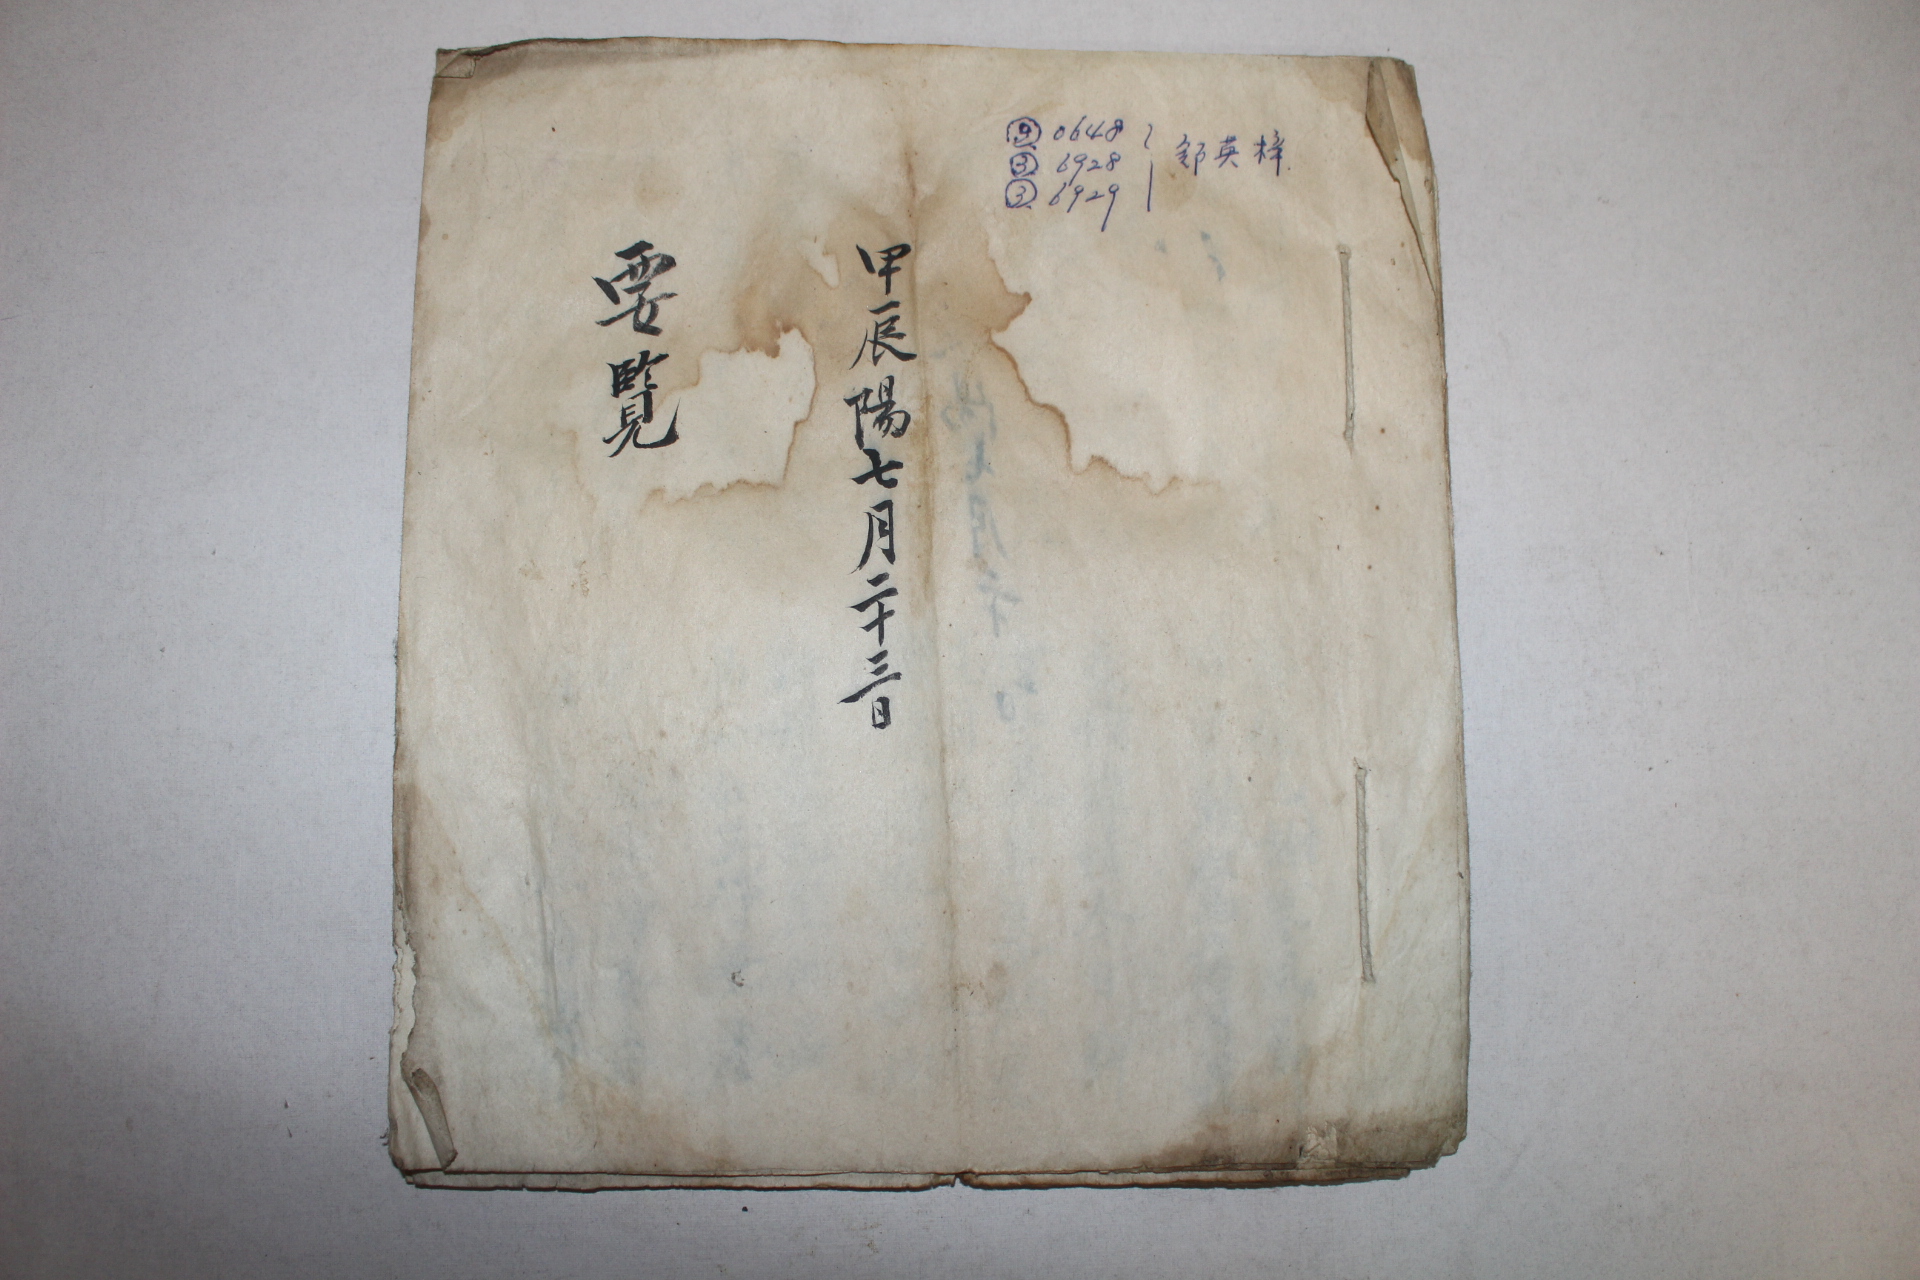 ⑨ 0648
③ 6928
③ 6929
英梓
甲辰陽七月二十三日
要覽